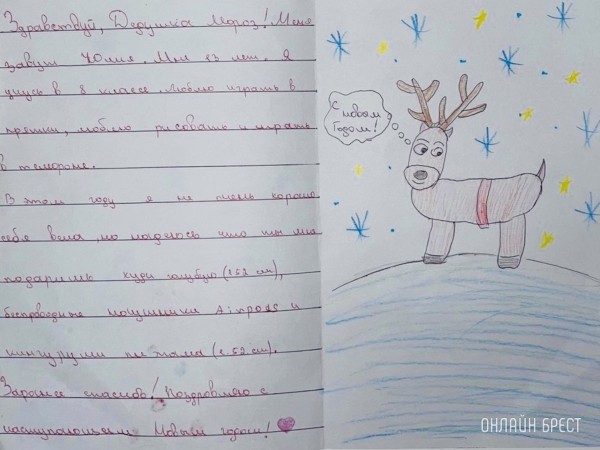 Здравствуй, Дедушка Мороз! Меня
зовут Юлия. Мне 13 лет. Я
учусь в 8 классе. Люблю играть в
прятки, люблю рисовать и играть
в телефоне.
В этом году я не очень хорошо
себя вела, но надеюсь что ты мне
подаришь худи голубую (152 см),
беспроводные наушники Airpods и
кингуруми пижама (152 см).
Заранее спасибо! Поздравляю с
наступающим Новым годом!
С новым
Годом!
ОНЛАЙН БРЕСТ